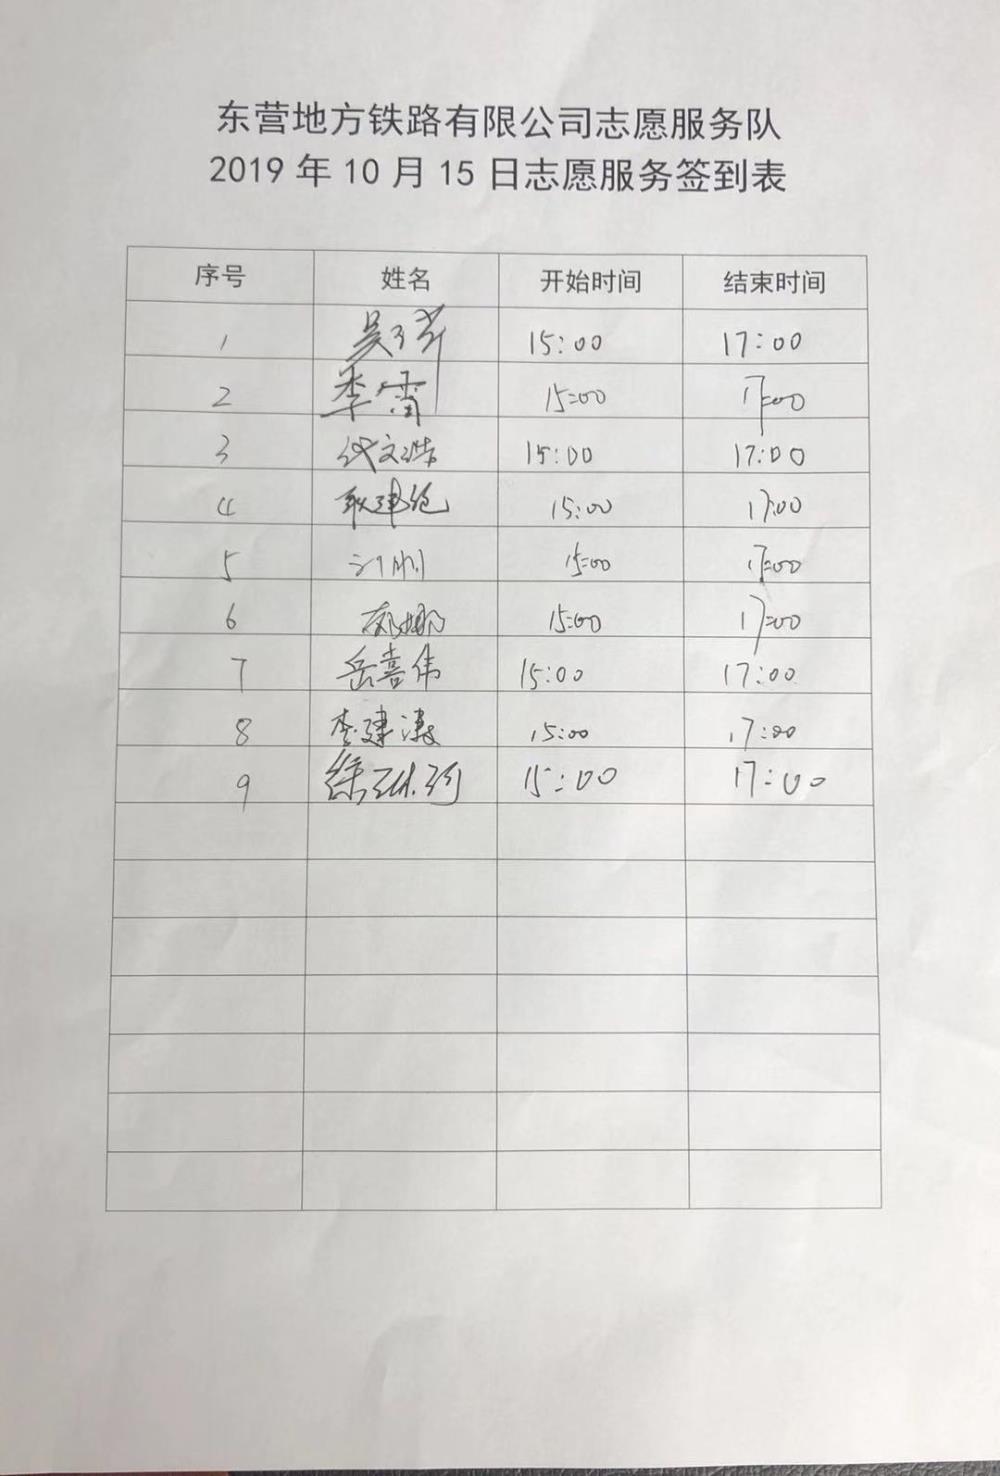 东营地方铁路有限公司志愿服务队
2019年10月15日志愿服务签到表
序号 姓名 开始时间 结束时间
1 15:00 17:00
2 李雷 15:00 17:00
3 代文浩 15:00 17:00
4 15:00 17:00
5 15:00 17:00
6 15:00 17:00
7 岳喜伟 15:00 17:00
8 李建 15:00 17:00
9 徐 15:00 17:00